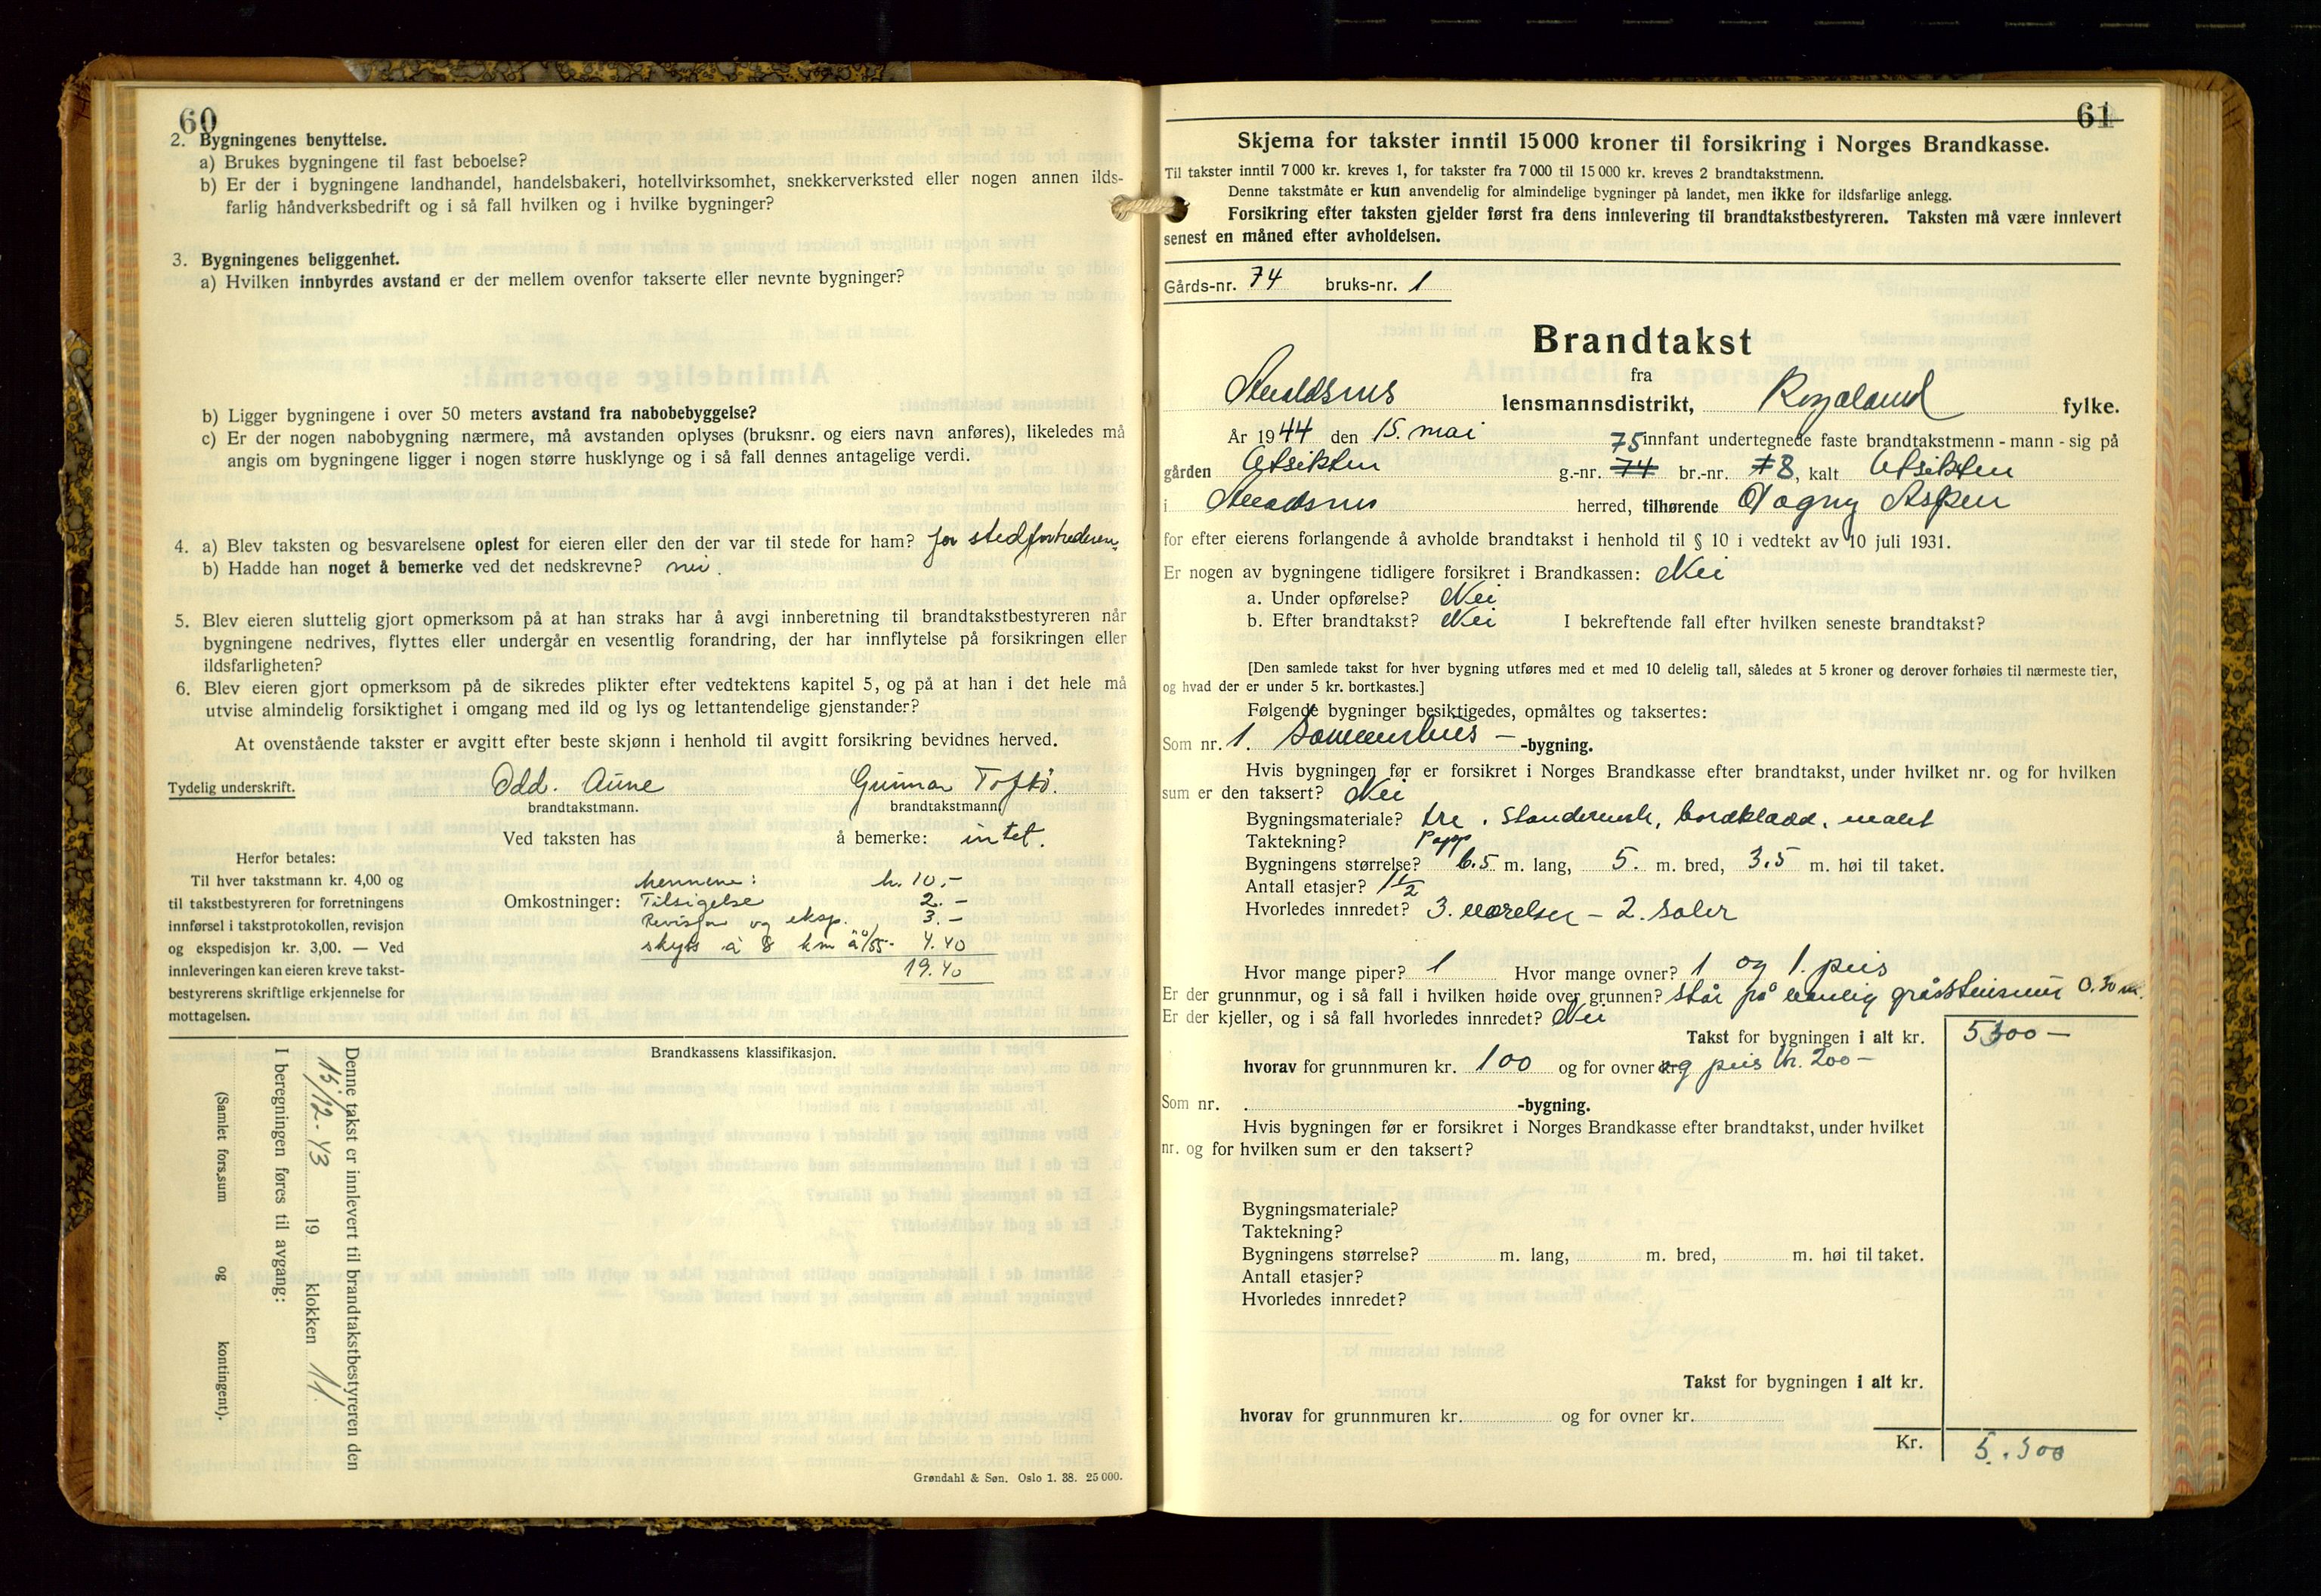 60
2. Bygningenes benyttelse.
a) Brukes bygningene til fast beboelse?
b) Er der i bygningene landhandel, handelsbakeri, hotellvirksomhet, snekkerverksted eller nogen annen ilds-
farlig håndverksbedrift og i så fall hvilken og i hvilke bygninger?
3. Bygningenes beliggenhet.
a) Hvilken innbyrdes avstand er der mellem ovenfor takserte eller nevnte bygninger?
b) Ligger bygningene i over 50 meters avstand fra nabobebyggelse?
c) Er der nogen nabobygning nærmere, må avstanden oplyses (bruksnr. og eiers navn anføres), likeledes må
angis om bygningene ligger i nogen større husklynge og i så fall dennes antagelige verdi.
4. a) Blev taksten og besvarelsene oplest for eieren eller den der var til stede for ham? for stedfortrederen
b) Hadde han noget å bemerke ved det nedskrevne? nei.
5. Blev eieren sluttelig gjort opmerksom på at han straks har å avgi innberetning til brandtakstbestyreren når
bygningene nedrives, flyttes eller undergår en vesentlig forandring, der har innflytelse på forsikringen eller
ildsfarligheten?
6. Blev eieren gjort opmerksom på de sikredes plikter efter vedtektens kapitel 5, og på at han i det hele må
utvise almindelig forsiktighet i omgang med ild og lys og lettantendelige gjenstander?
At ovenstående takster er avgitt efter beste skjønn i henhold til avgitt forsikring bevidnes herved.
Tydelig underskrift. Odd. Aune Gunnar Toftø.
brandtakstmann. brandtakstmann
Ved taksten has å bemerke: intet.
Herfor betales:
Til hver takstmann kr. 4,00 og
til takstbestyreren for forretningens
innførsel i takstprotokollen, revisjon
og ekspedisjon kr. 3,00. — Ved
innleveringen kan eieren kreve takst-
bestyrerens skriftlige erkjennelse for
mottagelsen.
mennene: kr. 10.-
Omkostninger: Tilsigelse 2.-
Revisjon og eksp. 3.-
skyss à 8 km à 0/55- 4.40
19.40
Brandkassens klassifikasjon.
Denne takst er innlevert til brandtakstbestyreren den
15/12-43 19 klokken 11
I beregningen føres til avgang:
(Samlet fors.sum og kontingent).
Grøndahl & Søn. Oslo 1. 38. 25 000.
61
Skjema for takster inntil 15 000 kroner til forsikring i Norges Brandkasse.
Til takster inntil 7 000 kr. kreves 1, for takster fra 7 000 til 15 000 kr. kreves 2 brandtakstmenn.
Denne takstmåte er kun anvendelig for almindelige bygninger på landet, men ikke for ildsfarlige anlegg.
Forsikring efter taksten gjelder først fra dens innlevering til brandtakstbestyreren. Taksten må være innlevert
senest en måned efter avholdelsen.
Gårds-nr. 74 bruks-nr. 1
Brandtakst
fra
lensmannsdistrikt, Rogaland fylke.
År 1944 den 15. mai innfant undertegnede faste brandtakstmenn - mann - sig på
gården Utsikten g.-nr. 74 75 br.-nr. 8, kalt Utsikten
i herred, tilhørende Dagny Aspen
for efter eierens forlangende å avholde brandtakst i henhold til § 10 i vedtekt av 10 juli 1931.
Er nogen av bygningene tidligere forsikret i Brandkassen: Nei
a. Under opførelse? Nei
b. Efter brandtakst? Nei I bekreftende fall efter hvilken seneste brandtakst?
[Den samlede takst for hver bygning utføres med et med 10 delelig tall, således at 5 kroner og derover forhøies til nærmeste tier,
og hvad der er under 5 kr. bortkastes.]
Følgende bygninger besiktigedes, opmåltes og taksertes:
Som nr. 1. Sommerhus - -bygning.
Hvis bygningen før er forsikret i Norges Brandkasse efter brandtakst, under hvilket nr. og for hvilken
sum er den taksert? Nei
Bygningsmateriale? tre. Standerverk, bordkledd, malet
Taktekning? Papp
Bygningens størrelse? 6.5 m. lang, 5. m. bred, 3.5 m. høi til taket.
Antall etasjer? 1 1/2
Hvorledes innredet? 3. værelser - 2. saler
Hvor mange piper? 1 Hvor mange ovner? 1 og 1. peis
Er der grunnmur, og i så fall i hvilken høide over grunnen? står på vanlig gråstensmur 0.30 m.
Er der kjeller, og i så fall hvorledes innredet? Nei
Takst for bygningen i alt kr. 5300 —
hvorav for grunnmuren kr. 100 og for ovner kr. og peis kr. 200 —
Som nr. -bygning.
Hvis bygningen før er forsikret i Norges Brandkasse efter brandtakst, under hvilket
nr. og for hvilken sum er den taksert?
Bygningsmateriale?
Taktekning?
Bygningens størrelse? m. lang, m. bred, m. høi til taket.
Antall etasjer?
Hvorledes innredet?
Takst for bygningen i alt kr.
hvorav for grunnmuren kr. og for ovner kr.
Kr. 5.300